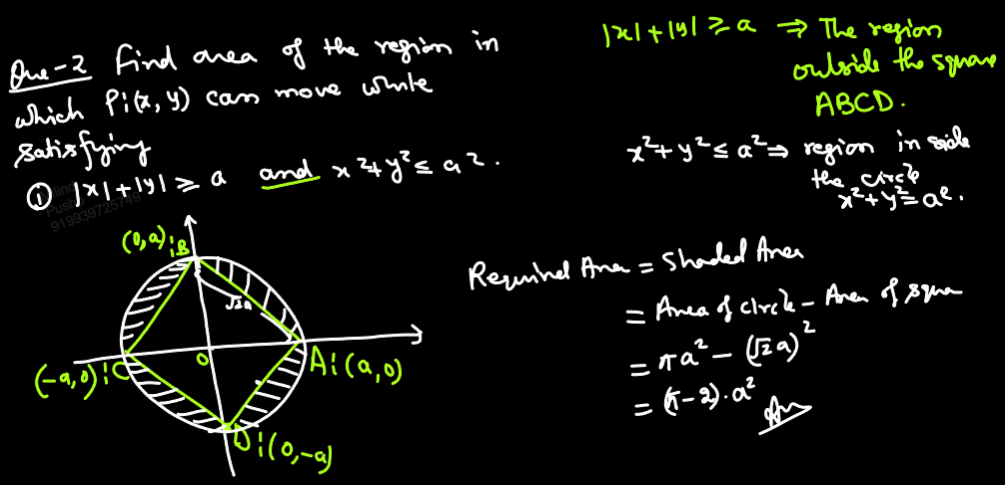 Que-2 Find area of the region in
which P:(x, y) can move while
satisfying
① |x|+|y| ≥ a and x²+y² ≤ a².
|x|+|y| ≥ a ⇒ The region
outside the square
ABCD.
x²+y² ≤ a² ⇒ region in side
the circle
x²+y²=a².
919939725749
(0,a):B
√2a
O
(-a,0):C
A:(a,0)
D:(0,-a)
Required Area = Shaded Area
= Area of circle - Area of squar
= πa² - (√2a)²
= (π-2).a²
Ans